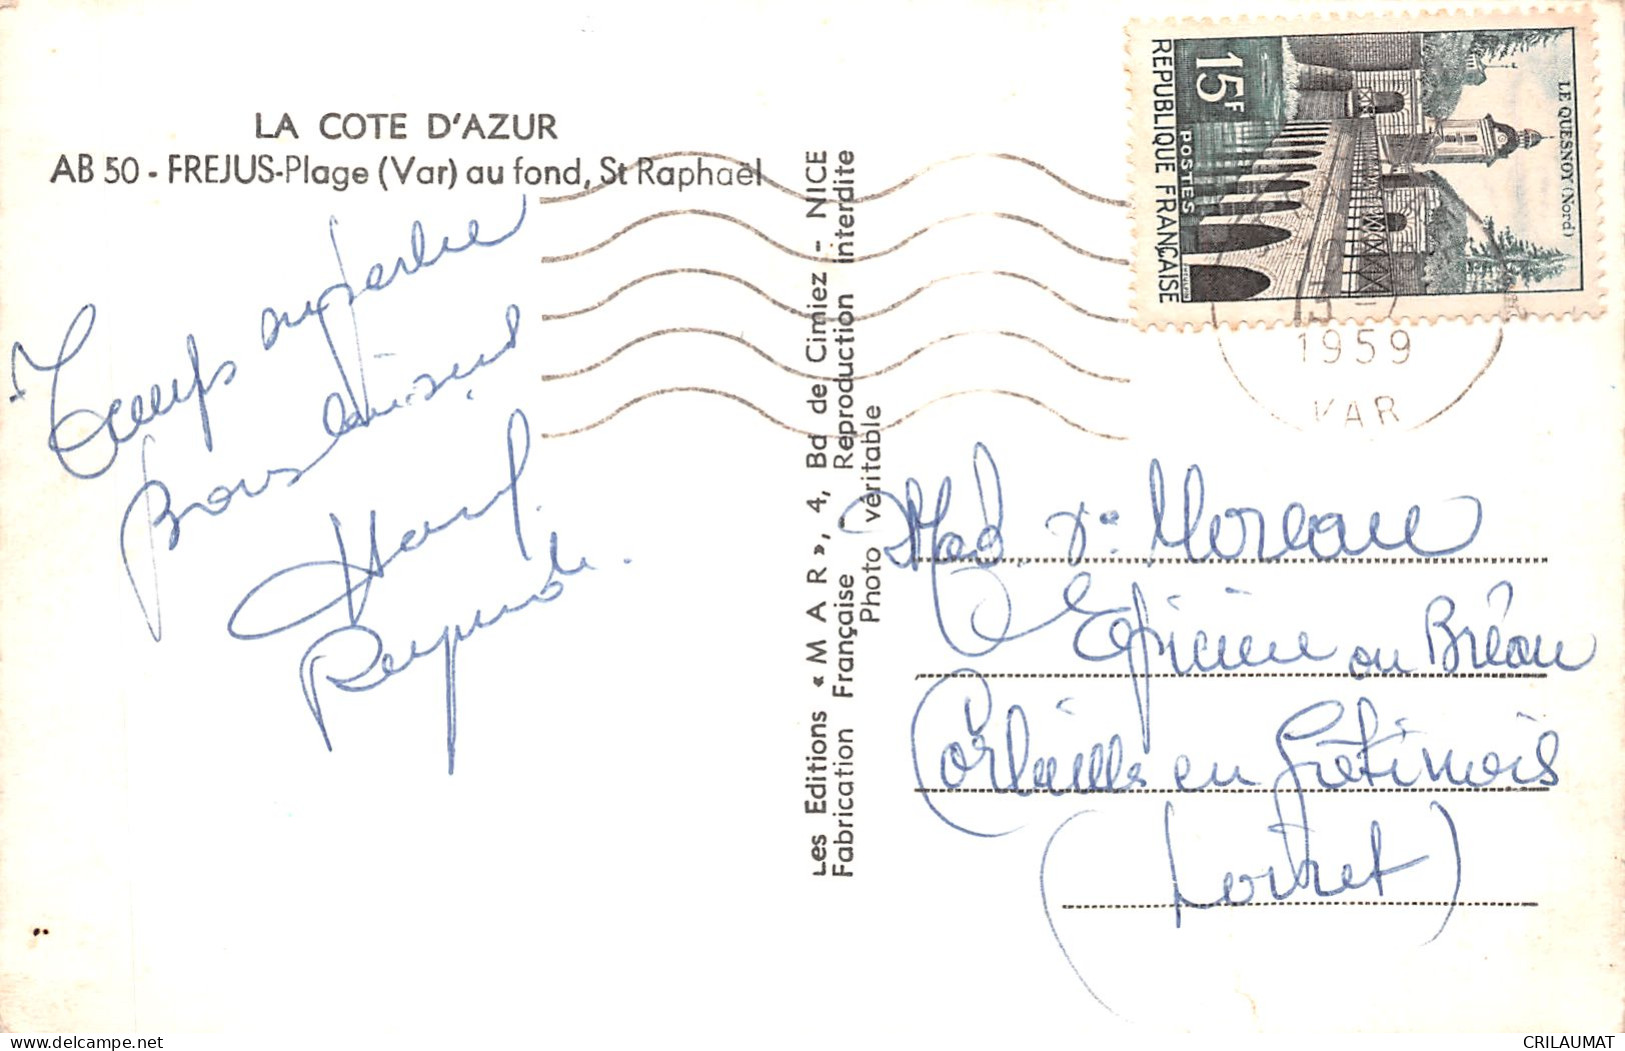 LA COTE D'AZUR
AB 50 - FREJUS-Plage (Var) au fond, St Raphaël
Temps superbe
Bons baisers
Reymonde.
Les Editions « M A R », 4, Bd de Cimiez - NICE
Fabrication Française Reproduction interdite
Photo véritable
15F
POSTES
REPUBLIQUE FRANÇAISE
LE QUESNOY (Nord)
1959
VAR
Mad Moreau
Epicerie au Bréau
Corbeilles en Gâtinois
(Loiret)
CRILAUMAT